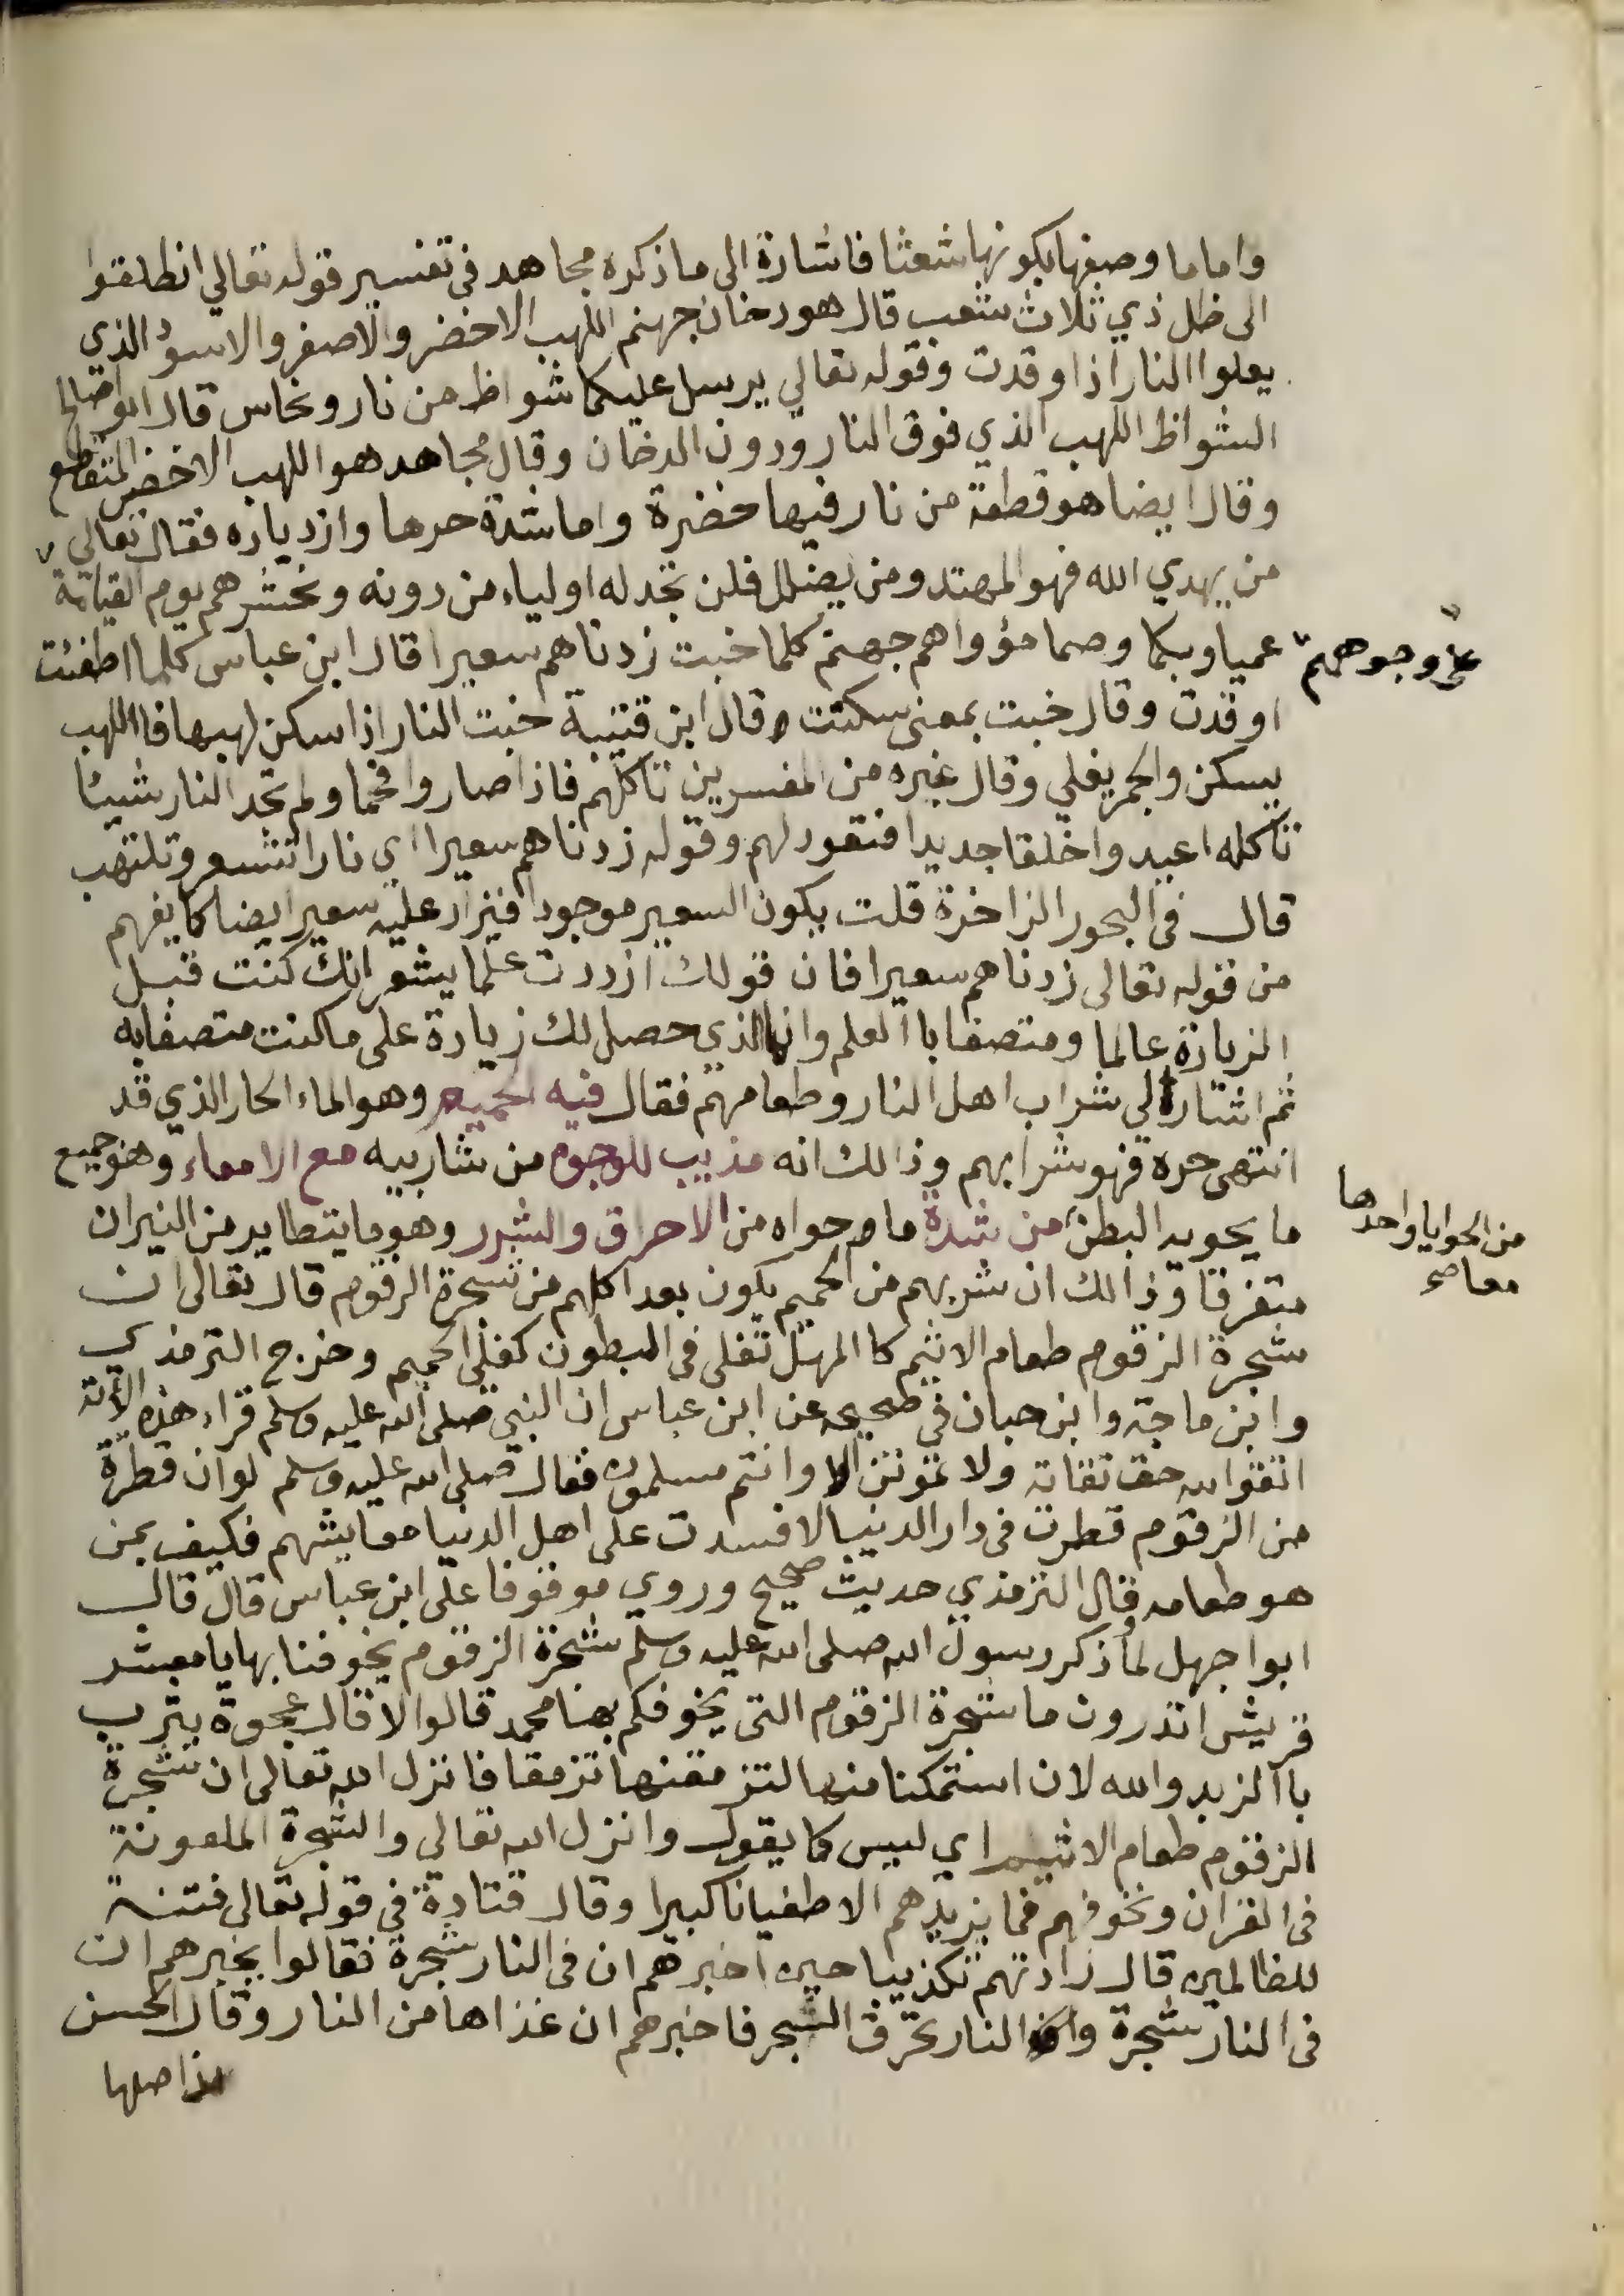 واماما وصفها بكونها شعثا فاشارة الى ما ذكره مجاهد في تفسير قوله تعالي انطلقوا
الى ظل ذي ثلاث شعب قال هو دخان جهنم اللهب الاخضر والاصفر والاسود الذي
يعلوا النار اذا وقدت وقوله تعالي يرسل عليكما شواظ من نار ونحاس قال ابو صالح
الشواظ اللهب الذي فوق النار ودون الدخان وقال مجاهد هو اللهب الاخضر المتقطع
وقال ايضا هو قطعة من نار فيها خضرة واما شدة حرها وازدياده فقال تعالي
من يهدي الله فهو المهتد ومن يضلل فلن تجد له اولياء من دونه ونحشرهم يوم القيامة
على وجوههم
عميا وبكما وصما مؤواهم جهنم كلما خبت زدناهم سعيرا قال ابن عباس كلما اطفئت
اوقدت وقال خبت بمعنى سكنت وقال ابن قتيبة خبت النار اذا سكن لهبها فااللهب
يسكن والجمر يغلي وقال غيره من المفسرين تاكلهم فاذا صاروا فحما ولم تجد النار شيئا
تاكله اعيدوا خلقا جديدا فتعود لهم وقوله زدناهم سعيرا اي نارا تتسعر وتلتهب
قال في البحور الزاخرة قلت يكون السعير موجودا فيزاد عليه سعير ايضا كما يفهم
من قوله تعالى زدناهم سعيرا فان قولك ازددت علما يشعر انك كنت قبل
الزيادة عالما ومتصفا باالعلم وانما الذي حصل لك زيادة على ما كنت متصفا به
ثم اشار الى شراب اهل النار وطعامهم فقال فيه الحميم وهو الماء الحار الذي قد
انتهى حره فهو شرابهم وذالك انه مذيب للوجوه من شاربيه مع الامعاء وهو جميع
ما يحويه البطن من شدة ما حواه من الاحراق والشرر وهو ما يتطاير من النيران
من الحوايا واحدها
معا صح
متفرقا وذالك ان شربهم من الحميم يكون بعد اكلهم من شجرة الزقوم قال تعالى ان
شجرة الزقوم طعام الاثيم كا المهل تغلى في البطون كغلي الحميم وخرج الترمذي
وابن ماجة وابن حبان في صحيحه عن ابن عباس ان النبي صلى الله عليه وسلم قراء هذه الآية
اتقوا الله حق تقاته ولا تموتن الا وانتم مسلمون فقال صلى الله عليه وسلم لوان قطرة
من الزقوم قطرت في دار الدنيا لافسدت على اهل الدنيا معايشهم فكيف بمن
هو طعامه قال الترمذي حديث صحيح وروي موقوفا على ابن عباس قال قال
ابوا جهل لما ذكر رسول الله صلى الله عليه وسلم شجرة الزقوم يخوفنا بها يا معشر
قريش اتدرون ما شجرة الزقوم التى يخوفكم بها محمد قالوا لا قال عجوة يثرب
باالزبد والله لان استمكنا منها لنتزقمنها تزقما فانزل الله تعالى ان شجرة
الزقوم طعام الاثيم اي ليس كما يقول وانزل الله تعالي والشجرة الملعونة
في القران ونخوفهم فما يزيدهم الا طغيانا كبيرا وقال قتادة في قوله تعالى فتنة
للظالمين قال زادتهم تكذيبا حين اخبرهم ان في النار شجرة فقالوا يخبرهم ان
في النار شجرة والنار تحرق الشجر فاخبرهم ان غذاها من النار وقال الحسن
اصلها